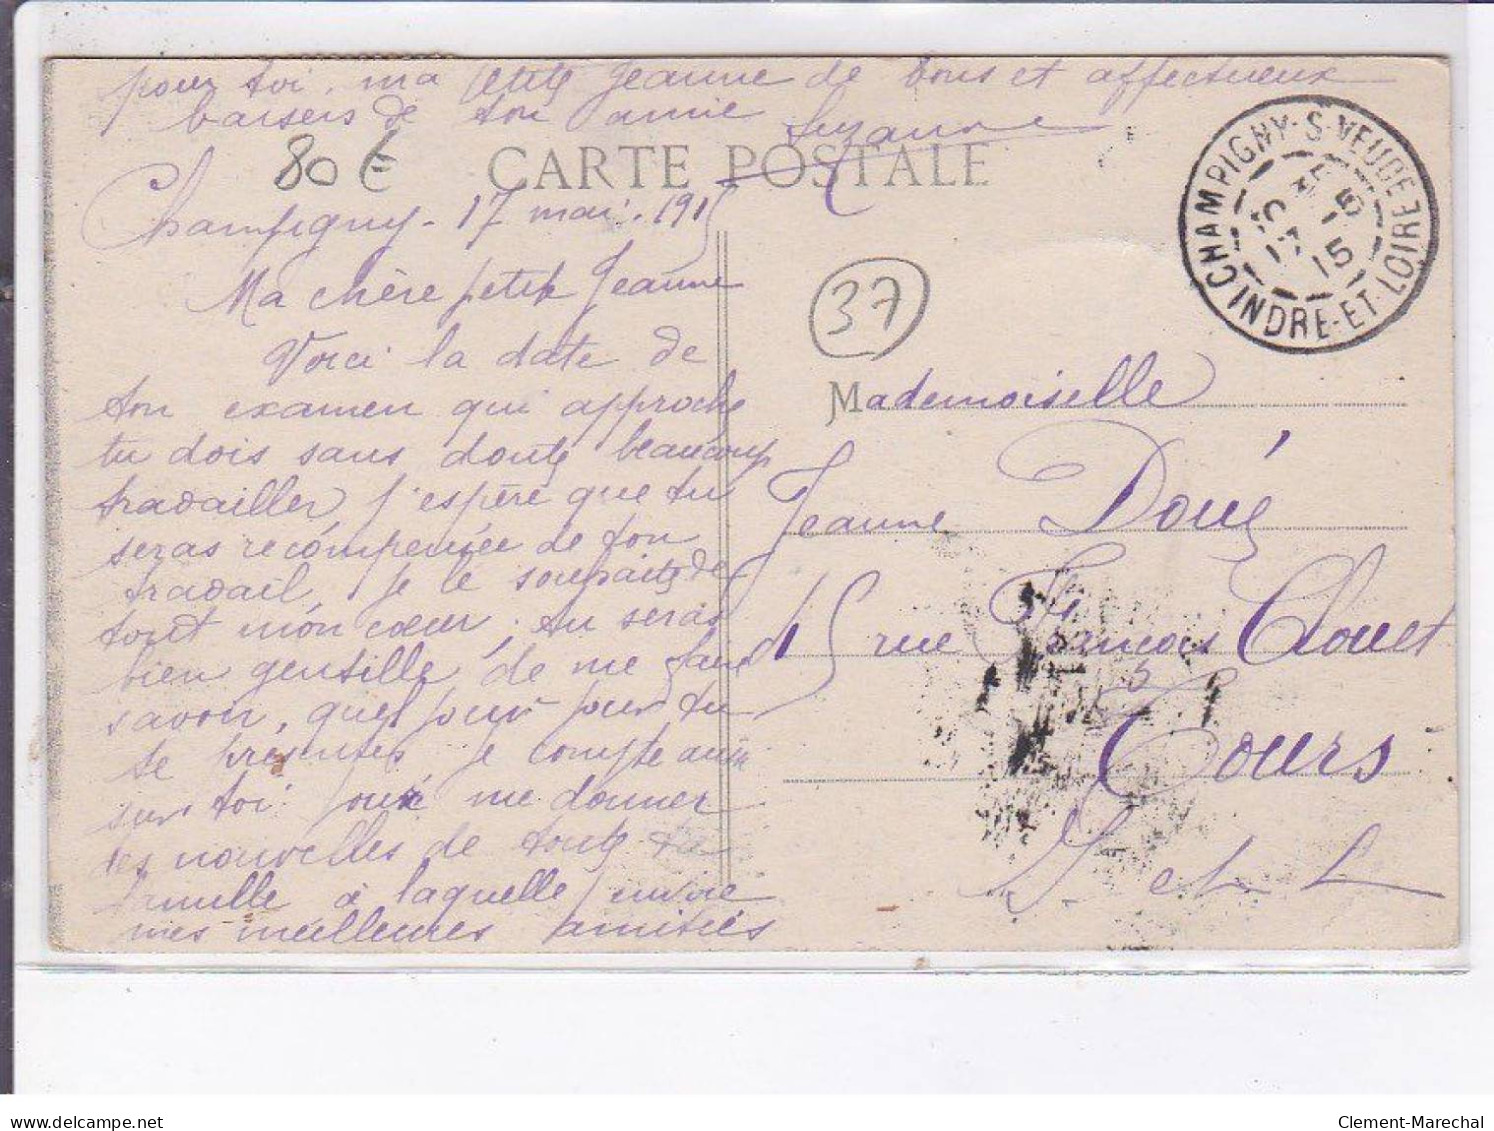 pour toi, ma petite Jeanne de bons et affectueux
baisers de ton amie Suzanne
80 €
CARTE POSTALE
Champigny - 17 mai 1915
CHAMPIGNY-S-VEUDE
INDRE-ET-LOIRE
17 5 15
37
Ma chère petite Jeanne
Voici la date de
ton examen qui approche
tu dois sans doute beaucoup
travailler j'espère que tu
seras récompensée de ton
travail je le souhaite de
tout mon cœur. tu seras
bien gentille de me faire
savoir, quel jour tu
te présentes je compte aussi
sur toi pour me donner
des nouvelles de toute ta
famille à laquelle j'envoie
mes meilleures amitiés
Mademoiselle
Jeanne Doué
15 rue François Clouet
Tours
I et L
delcampe.net
Clement-Marechal